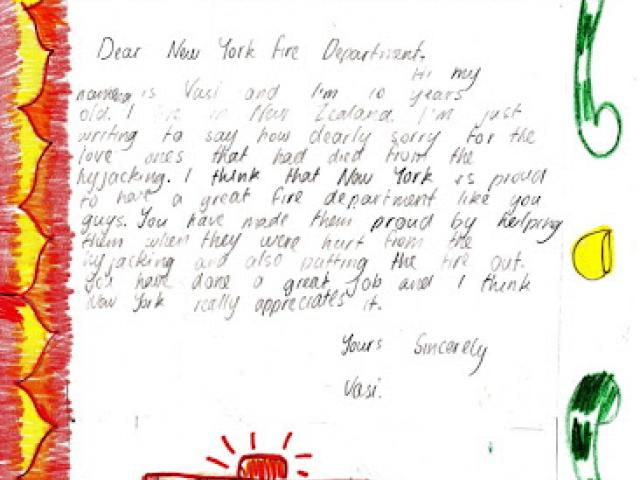 Dear New York Fire Department.
Hi my
name is Vasi and I'm 10 years
old. I live in New Zealand. I'm just
writing to say how dearly sorry for the
love ones that had died from the
hyjacking. I think that New York is proud
to have a great fire department like you
guys. You have made them proud by helping
them when they were hurt from the
hyjacking and also putting the fire out.
You have done a great job and I think
New York really appreciates it.
Yours Sincerely
Vasi.